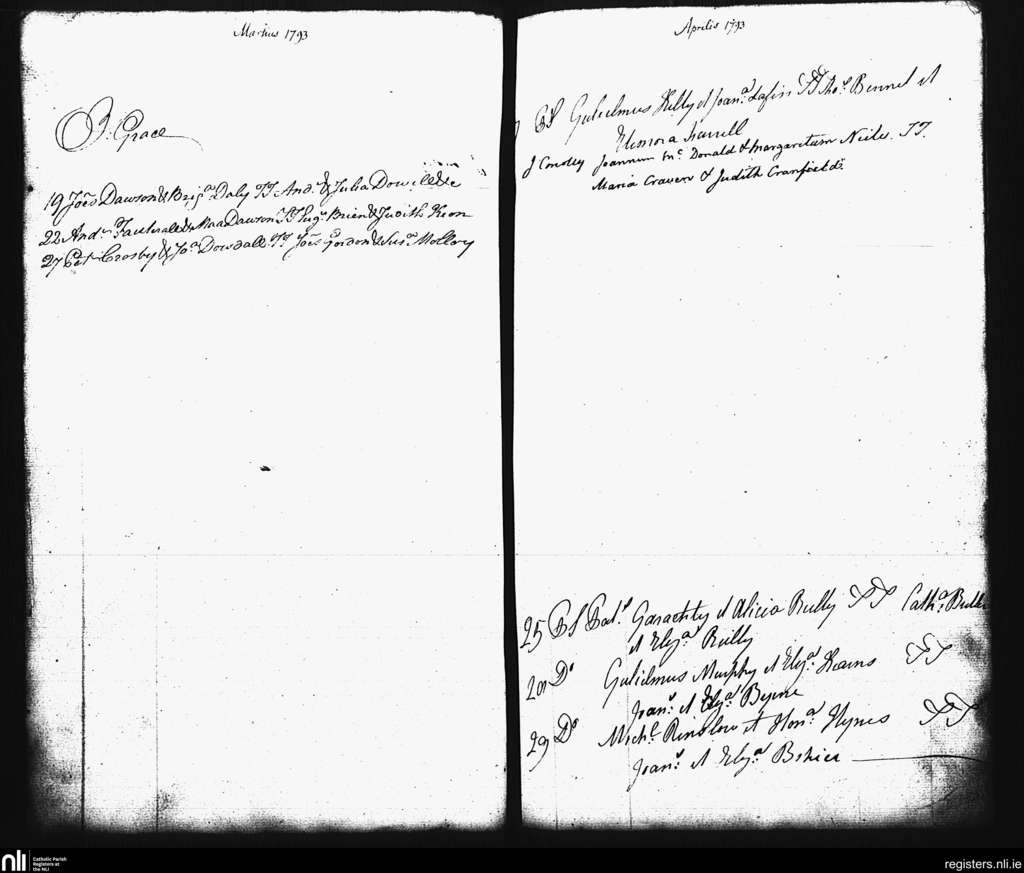 Martius 1793
B: Grace
19 Joēs Dawson & Brigᵃ Daly TT And. & Julia
22 Andʷ & Maa Dawson TT Hugᵒ Brien & Judith Keon
27 Pet Crosby & Joᵃ Dowdall TT Joēs Gordon & Susᵃ Mollory
Aprilis 1793
Gulielmus Kelly et Joanᵃ TT Thoˢ Bennet et
Elenora
J Conolly Joannem Mᶜ Donald & Margaretam Neile. TT.
Maria Craven & Judith Cranfield
25 Patᵗ Garaghty et Alicia Rielly TT Cathᵃ
et Elyᵃ Rielly
Dᵒ Gulielmus Murphy et Elyᵃ TT
Joanˢ et Elyᵃ Byrne
29 Dᵒ Michˡ et Honᵃ Hynes TT
Joanˢ et Elyᵃ
nli Catholic Parish
Registers at
the NLI
registers.nli.ie